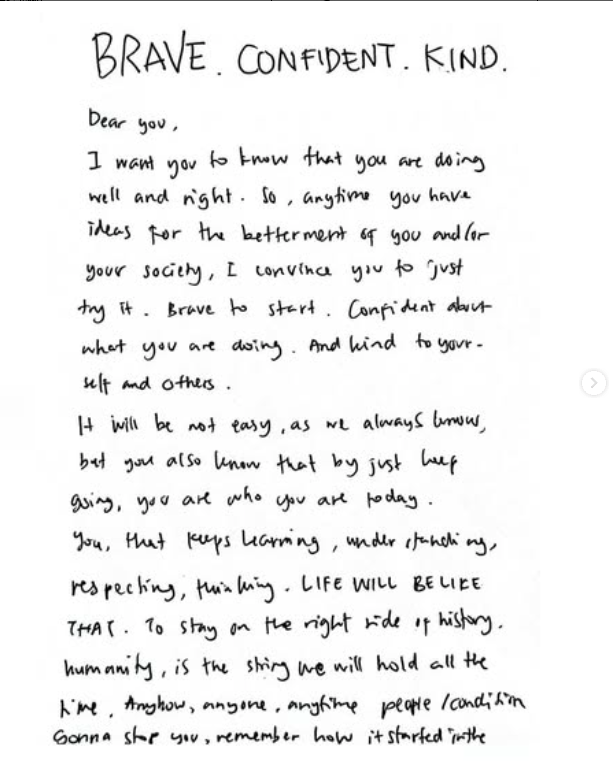 BRAVE. CONFIDENT. KIND.
Dear you,
I want you to know that you are doing
well and right. So, anytime you have
ideas for the betterment of you and/or
your society, I convince you to just
try it. Brave to start. Confident about
what you are doing. And kind to your-
self and others.
It will be not easy, as we always know,
but you also know that by just keep
going, you are who you are today.
You, that keeps learning, understanding,
respecting, thinking. LIFE WILL BE LIKE
THAT. To stay on the right side of history,
humanity, is the string we will hold all the
time. Anyhow, anyone, anytime people/condition
Gonna stop you, remember how it started in the